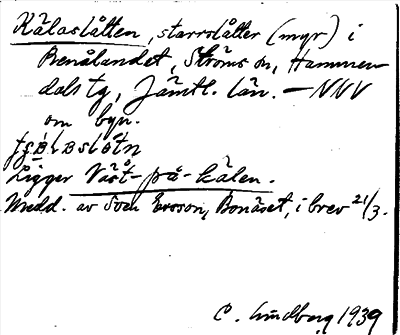 Kälaslåtten, starrslåtter (myr) i
Renålandet, Ströms sn, Hammer
dals tg, Jämtl. län. — NNV
om byn.
Ligger Väst-på-kälen.
Medd. av Sven Ersson, Bonäset, i brev 21/3.
C. Lindberg 1939